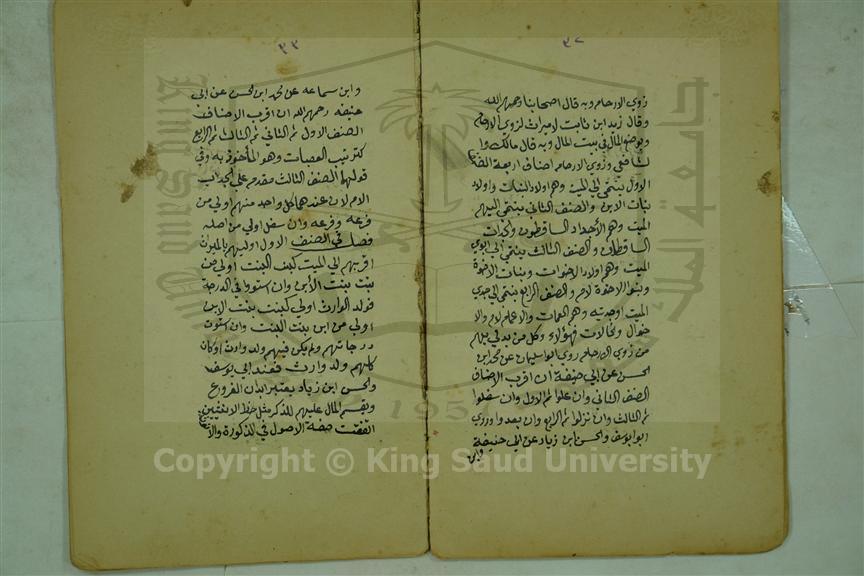 ٣٢
زوي الارحام وبه قال اصحابنا رحمهم الله
وقال زيد ابن ثابت لا ميراث لزوي الارحام
ويوضع المال في بيت المال وبه قال مالك وا
لشافعي وزوي الارحام اصناف اربعة الصنف
الاول ينتمي الي الميت وهم اولاد البنات واولاد
بنات الابن والصنف الثاني ينتمي اليهم
الميت وهم الاجداد الساقطون والجدات
الساقطات والصنف الثالث ينتمي الي ابوي
الميت وهم اولاد الاخوات وبنات الاخوة
وبنوا الاخوة لام والصنف الرابع ينتمي الي جدي
الميت او جدتيه وهم العمات والاعمام لام والا
خوال والخالات فهؤلاء وكل من يدلي بهم
من زوي الارحام روي ابو سليمان عن محمد ابن
الحسن عن ابي حنيفة ان اقرب الاصناف
الصنف الثاني وان علوا ثم الاول وان سفلوا
ثم الثالث وان نزلوا ثم الرابع وان بعدوا وروي
ابو ايوسف والحسن ابن زياد عن ابي حنيفة
وابن
٣٣
وابن سماعه عن محمد ابن الحسن عن ابي
حنيفه رحمهم الله ان اقرب الاصناف
الصنف الاول ثم الثاني ثم الثالث ثم الرابع
كترتيب العصبات وهو المأخوذ به وفي
قولهما الصنف الثالث مقدم علي الجد اب
الام لان عندهما كل واحد منهم اولي من
فرعه وفرعه وان سفل اولي من اصله
فصل في الصنف الاول اوليهم بالميراث
اقربهم الي الميت كبنت البنت اولي من
بنت بنت الأبن وان استووا في الدرجة
فولد الوارث اولي كبنت بنت الابن
اولي من ابن بنت البنت وان استوت
درجاتهم ولم يكن فيهم ولد وارث او كان
كلهم ولد وارث فعند ابي يوسف
والحسن ابن زياد يعتبر ابدان الفروع
ويقسم المال عليهم للذكر مثل حظ الانثيين
اتفقت صفة الاصول في الذكورة والأ
Copyright © King Saud University